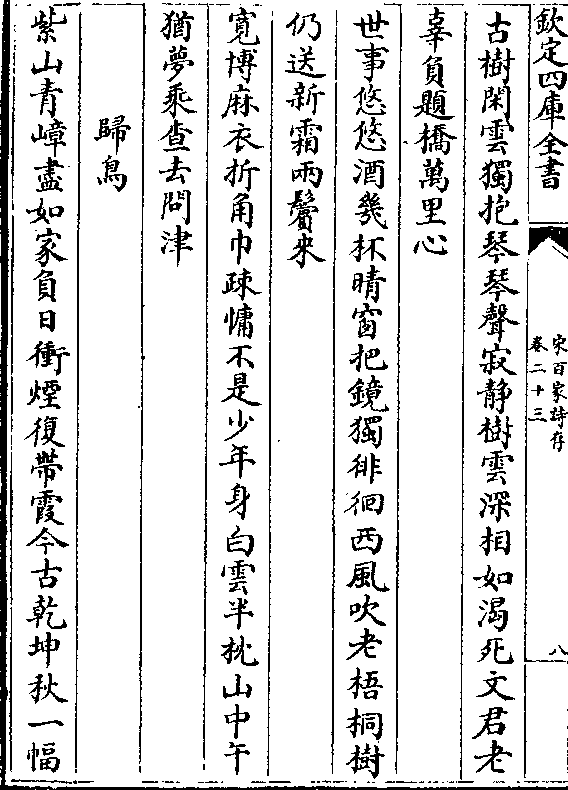 欽定四庫全書
宋百家詩存
卷二十三
八
古樹閑雲獨抱琴琴聲寂静樹雲深相如渴死文君老
辜負題橋萬里心
世事悠悠酒幾杯晴窗把鏡獨徘徊西風吹老梧桐樹
仍送新霜兩鬢來
寛博麻衣折角巾疎慵不是少年身白雲半枕山中午
猶夢乘查去問津
歸鳥
紫山青嶂盡如家負日衝煙復帶霞今古乾坤秋一幅